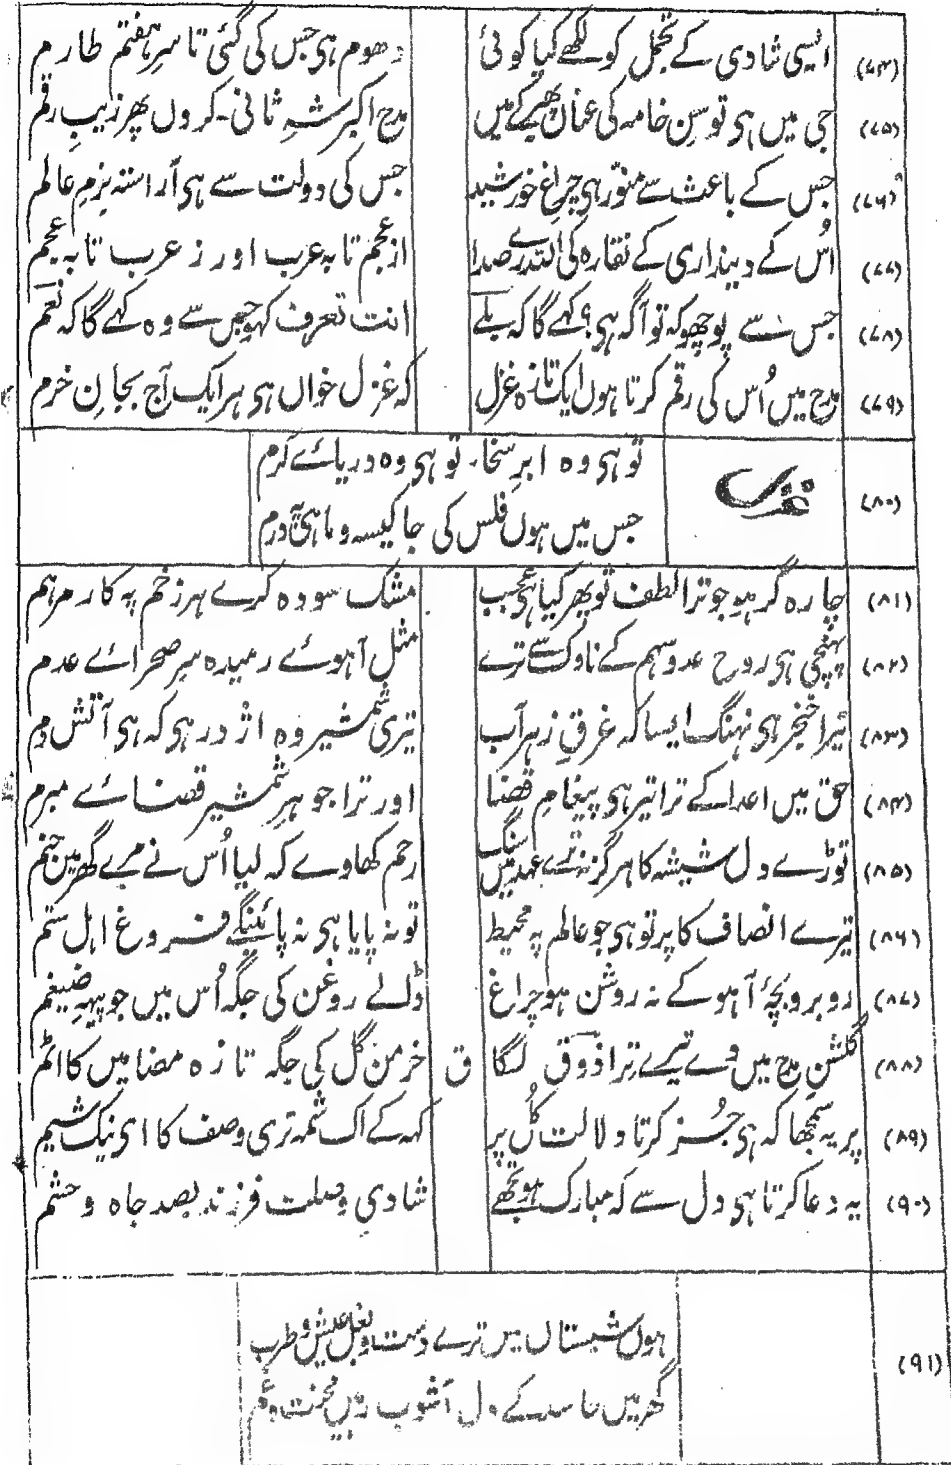 (۷۴) ایسی شادی کے تجمل کو لکھے کیا کوئی دھوم ہی جس کی گئی تا سرِ ہفتم طارم
(۷۵) جی میں ہی توسنِ خامہ کی عناں پھیر کے میں مدح اکبر شہِ ثانی۔ کروں پھر زیبِ رقم
(۷۶) جس کے باعث سے منور ہی چراغِ خورشید جس کی دولت سے ہی آراستہ بزمِ عالم
(۷۷) اُس کے دینداری کے نقارہ کی اللہ رے صدا از عجم تا بہ عرب اور ز عرب تا بہ عجم
(۷۸) جس سے پوچھو کہ تو آگہ ہی؟ کہے گا کہ بلے انت تعرف کہو جس سے وہ کہے گا کہ نعم
(۷۹) مدح میں اُس کی رقم کرتا ہوں ایک تازہ غزل کہ غزل خواں ہی ہر ایک آج بجانِ خرم
(۸۰) غزل
تو ہی وہ ابرِ سخا۔ تو ہی وہ دریائے کرم
جس میں ہوں فلس کی جا کیسہ و ماہی درم
(۸۱) چارہ گر ہو جو ترا لطف تو پھر کیا ہی عجب مشک سودہ کرے ہر زخم پہ کارِ مرہم
(۸۲) پہنچی ہی روح عدو سہم کے ناوک سے ترے مثل آہوئے رمیدہ سرِ صحرائے عدم
(۸۳) تیرا خنجر ہی نہنگ ایسا کہ غرقِ زہر آب تیری شمشیر وہ اژدر ہی کہ ہی آتش دم
(۸۴) حق میں اعدا کے ترا تیر ہی پیغامِ قضا اور ترا جوہرِ شمشیر قضائے مبرم
(۸۵) توڑے دل شیشہ کا ہرگز نہ ترے عہد میں سنگ رحم کھاوے کہ لیا اُس نے مرے گھر میں جنم
(۸۶) تیرے انصاف کا پرتو ہی جو عالم پہ محیط تو نہ پایا ہی نہ پائینگے فروغ اہل ستم
(۸۷) روبرو بچۂ آہو کے نہ روشن ہو چراغ ڈالے روغن کی جگہ اُس میں جو پیہِ ضیغم
(۸۸) گلشنِ مدح میں تیرے ترا ذوق لگا ق خرمن گل کی جگہ تازہ مضامیں کا اٹم
(۸۹) پر یہ سمجھا کہ ہی جُز کرتا دلالت کُل پر کہہ کے اک شمہ تری وصف کا ای نیک شیم
(۹۰) یہ دعا کرتا ہی دل سے کہ مبارک ہو تجھے شادیِ وصلت فرزند بصد جاہ و حشم
(۹۱) ہوں شبستاں میں ترے دست و بغل عیش و طرب
گھر میں حاسد کے دل آشوب رہیں محنت و غم